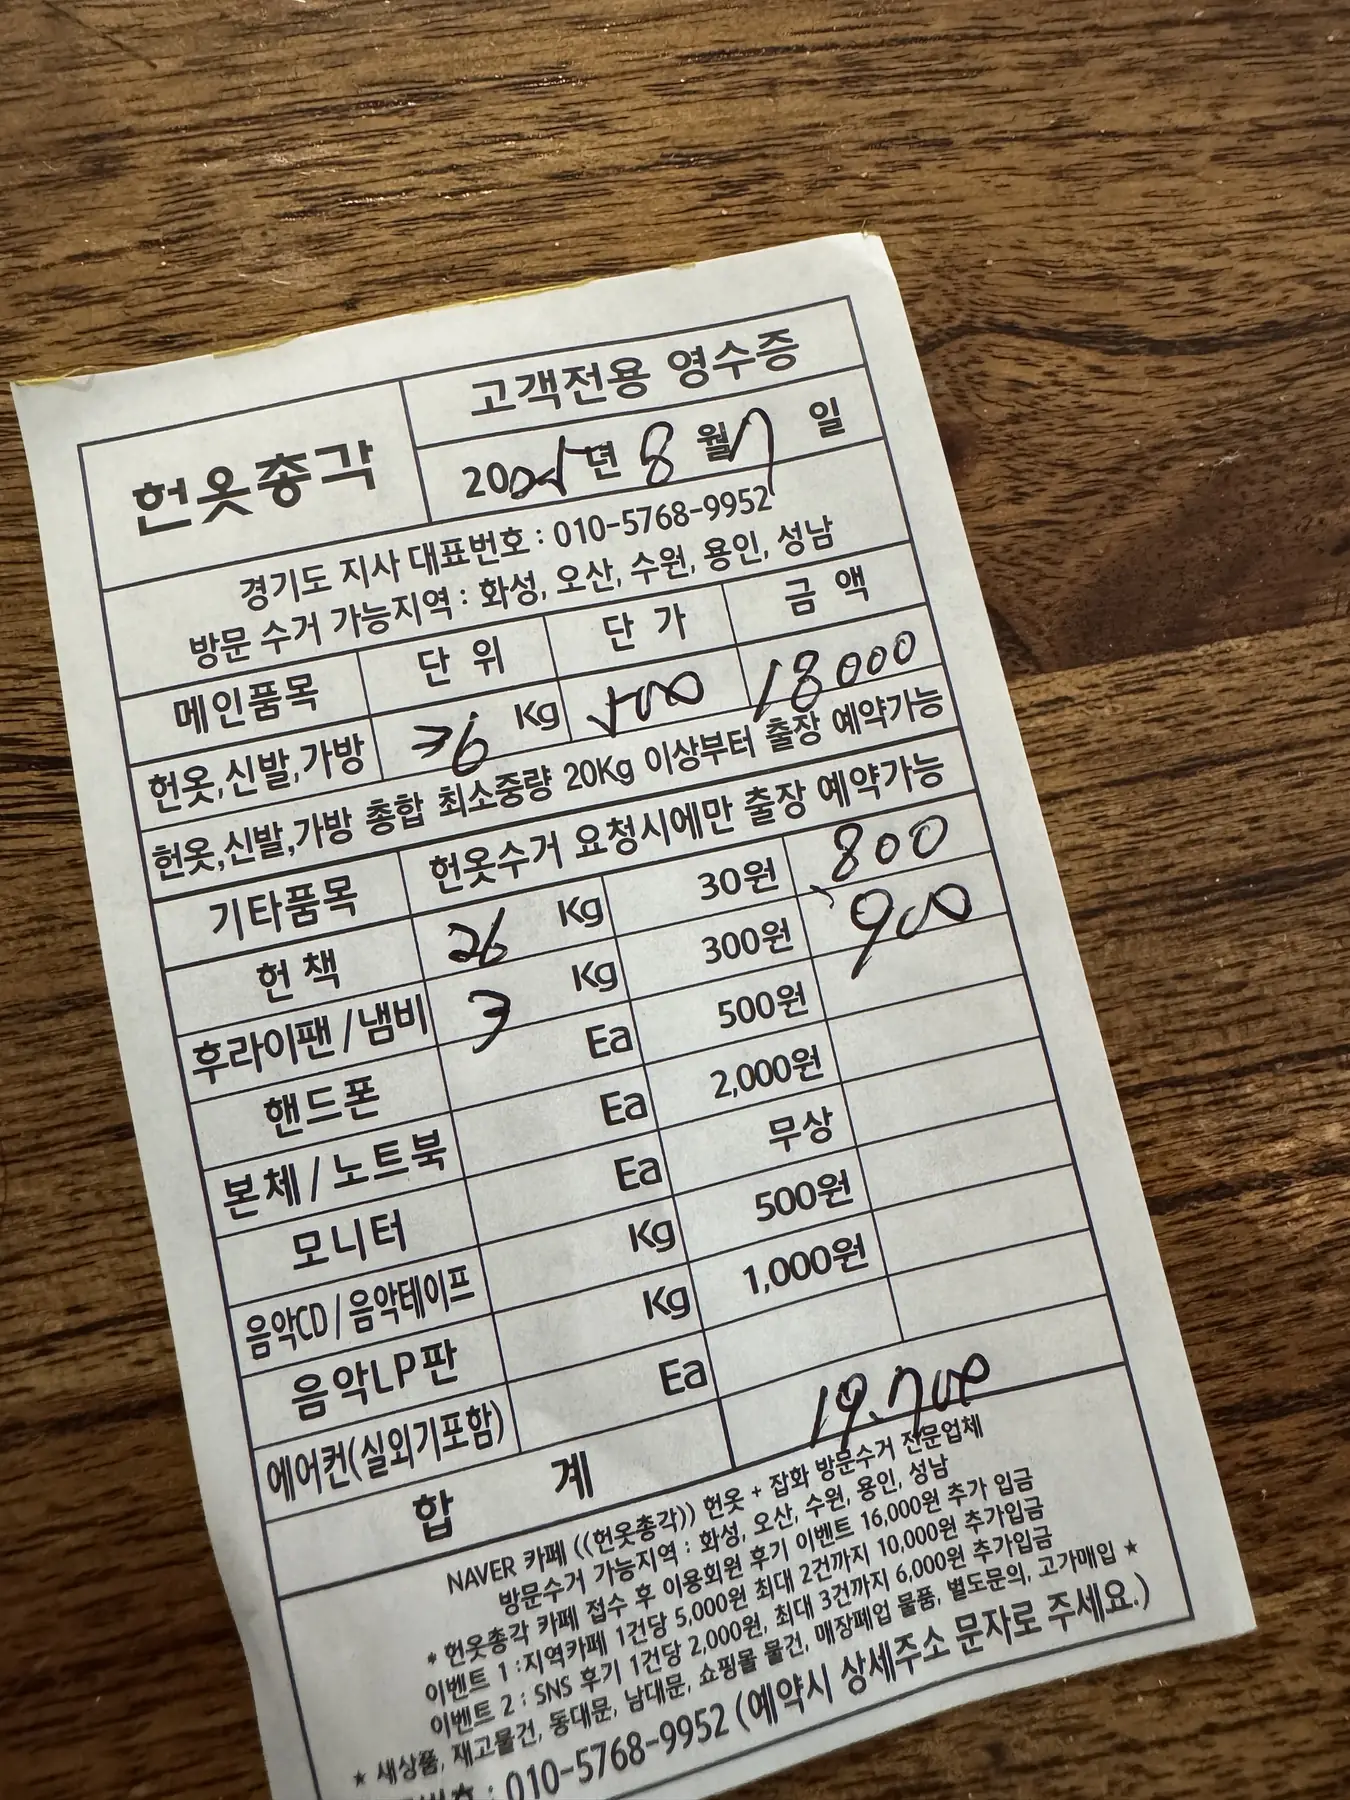 헌옷총각
고객전용 영수증
2025년 8월 7일
경기도 지사 대표번호 : 010-5768-9952
방문 수거 가능지역 : 화성, 오산, 수원, 용인, 성남
메인품목 단 위 단 가 금 액
헌옷,신발,가방 36 Kg 500 18000
헌옷,신발,가방 총합 최소중량 20Kg 이상부터 출장 예약가능
기타품목 헌옷수거 요청시에만 출장 예약가능
헌 책 26 Kg 30원 800
후라이팬/냄비 3 Kg 300원 900
핸드폰 Ea 500원
본체/노트북 Ea 2,000원
모니터 Ea 무상
음악CD/음악테이프 Kg 500원
음악LP판 Kg 1,000원
에어컨(실외기포함) Ea
합 계 19.700
NAVER 카페 ((헌옷총각)) 헌옷 + 잡화 방문수거 전문업체
방문수거 가능지역 : 화성, 오산, 수원, 용인, 성남
* 헌옷총각 카페 접수 후 이용회원 후기 이벤트 16,000원 추가 입금
이벤트 1 :지역카페 1건당 5,000원 최대 2건까지 10,000원 추가입금
이벤트 2 : SNS 후기 1건당 2,000원, 최대 3건까지 6,000원 추가입금
★ 새상품, 재고물건, 동대문, 남대문, 쇼핑몰 물건, 매장폐업 물품, 별도문의, 고가매입 ★
: 010-5768-9952 (예약시 상세주소 문자로 주세요.)